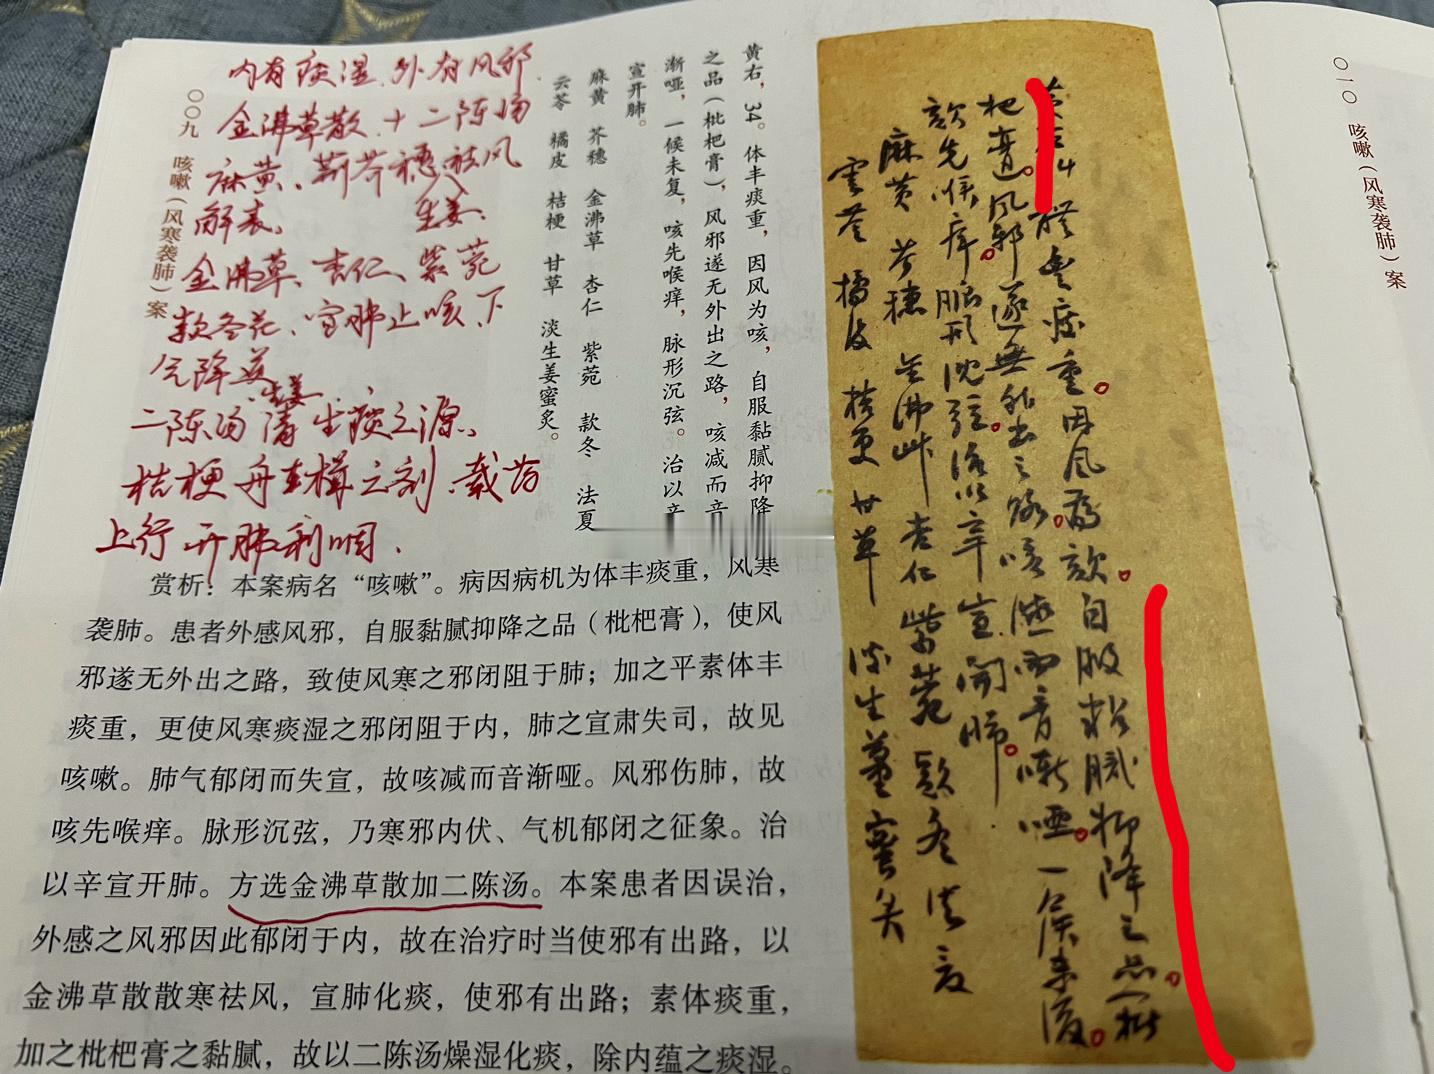 〇一〇 咳嗽(风寒袭肺)案
体丰痰重因风为咳自服黏腻抑降之品(枇
杷膏)风邪遂无外出之路咳减而音渐哑一候未复
咳先喉痒脉形沉弦治以辛宣开肺
麻黄 芥穗 金沸草 杏仁 紫菀 款冬 法夏
云苓 橘皮 桔梗 甘草 淡生姜蜜炙
黄右,34。体丰痰重,因风为咳,自服黏腻抑降
之品(枇杷膏),风邪遂无外出之路,咳减而音
渐哑,一候未复,咳先喉痒,脉形沉弦。治以辛
宣开肺。
麻黄 芥穗 金沸草 杏仁 紫菀 款冬 法夏
云苓 橘皮 桔梗 甘草 淡生姜蜜炙。
〇〇九 咳嗽(风寒袭肺)案
内有痰湿、外有风邪
金沸草散十二陈汤
麻黄、荆芥穗祛风
解表、生姜、
金沸草、杏仁、紫菀
款冬花、宣肺止咳、下
气降逆、生姜
二陈汤清生痰之源、
桔梗舟楫之剂、载药
上行开肺利咽、
赏析:本案病名“咳嗽”。病因病机为体丰痰重,风寒
袭肺。患者外感风邪,自服黏腻抑降之品(枇杷膏),使风
邪遂无外出之路,致使风寒之邪闭阻于肺;加之平素体丰
痰重,更使风寒痰湿之邪闭阻于内,肺之宣肃失司,故见
咳嗽。肺气郁闭而失宣,故咳减而音渐哑。风邪伤肺,故
咳先喉痒。脉形沉弦,乃寒邪内伏、气机郁闭之征象。治
以辛宣开肺。方选金沸草散加二陈汤。本案患者因误治,
外感之风邪因此郁闭于内,故在治疗时当使邪有出路,以
金沸草散散寒祛风,宣肺化痰,使邪有出路;素体痰重,
加之枇杷膏之黏腻,故以二陈汤燥湿化痰,除内蕴之痰湿。